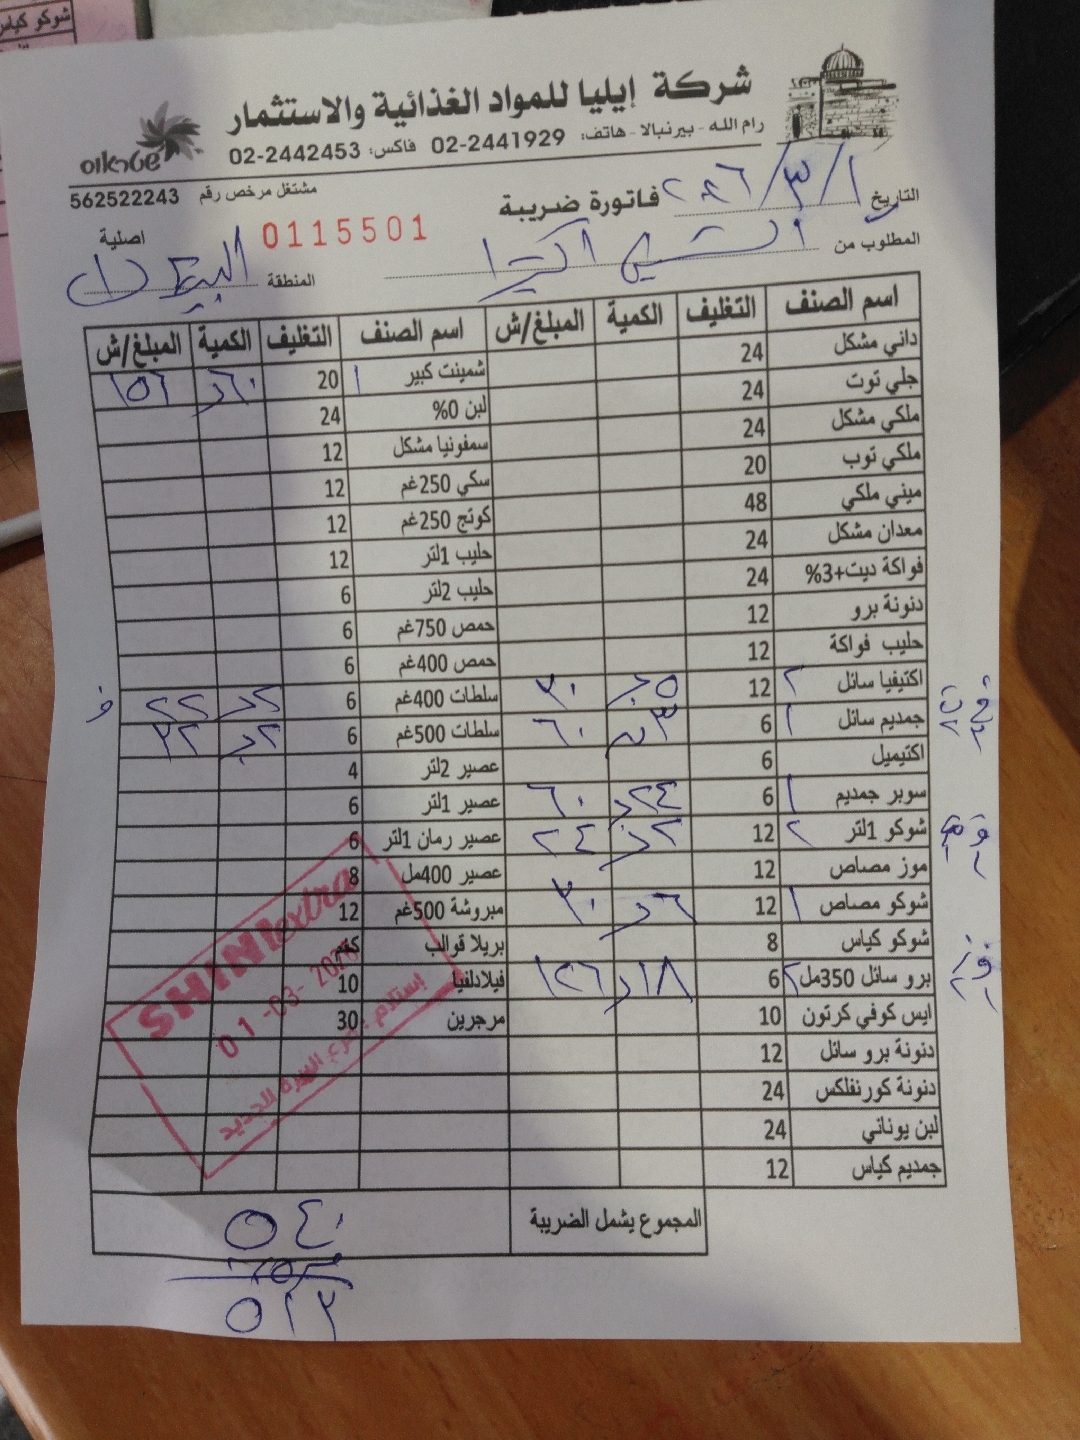 شوكو كياس
شركة إيليا للمواد الغذائية والاستثمار
رام الله - بيرنبالا - هاتف: 02-2441929 فاكس: 02-2442453
شتراوس
مشتغل مرخص رقم 562522243
التاريخ ١/٣/٢٠٢٦ فاتورة ضريبة
0115501 اصلية
المطلوب من الشني اكسترا المنطقة
اسم الصنف التغليف الكمية المبلغ/ش اسم الصنف التغليف الكمية المبلغ/ش
داني مشكل 24 شمينت كبير ١ 20 ٦٠ ١٥٦
جلي توت 24 لبن 0% 24
ملكي مشكل 24 سمفونيا مشكل 12
ملكي توب 20 سكي 250غم 12
ميني ملكي 48 كوتج 250غم 12
معدان مشكل 24 حليب 1لتر 12
فواكة ديت+3% 24 حليب 2لتر 6
دنونة برو 12 حمص 750غم 6
حليب فواكة 12 حمص 400غم 6
اكتيفيا سائل ٢ 12 ٥ ٣٠ سلطات 400غم 6 ٢ ٢٢
جمديم سائل ١ 6 ٣ ٦٠ سلطات 500غم 6 ٢ ٣٢
اكتيميل 6 عصير 2لتر 4
سوبر جمديم ١ 6 ٢٤ ٦٠ عصير 1لتر 6
شوكو 1لتر ٢ 12 ٢ ٢٤ عصير رمان 1لتر 6
موز مصاص 12 عصير 400مل 8
شوكو مصاص ١ 12 ٦ ٣٠ مبروشة 500غم 12
شوكو كياس 8 بريلا قوالب كغم
برو سائل 350مل ٢ 6 ١٨ ١٢٦ فيلادلفيا 10
ايس كوفي كرتون 10 مرجرين 30
دنونة برو سائل 12
دنونة كورنفلكس 24
لبن يوناني 24
جمديم كياس 12
SHINI extra
01-03-2026
إستلام - فرع البيرة الجديد
المجموع يشمل الضريبة ٥٤٠
٥١٣